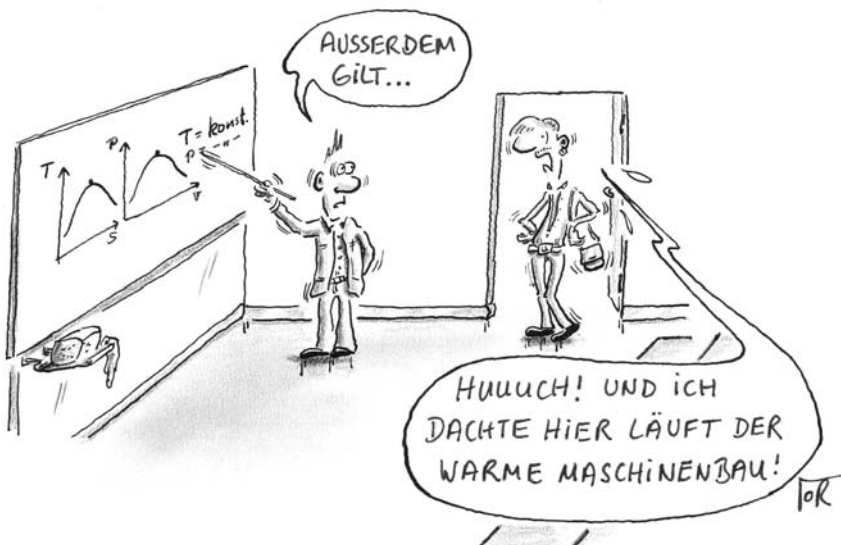 AUSSERDEM
GILT...
T
S
P
V
T = konst.
P = -"-
HUUUCH! UND ICH
DACHTE HIER LÄUFT DER
WARME MASCHINENBAU!
TOR